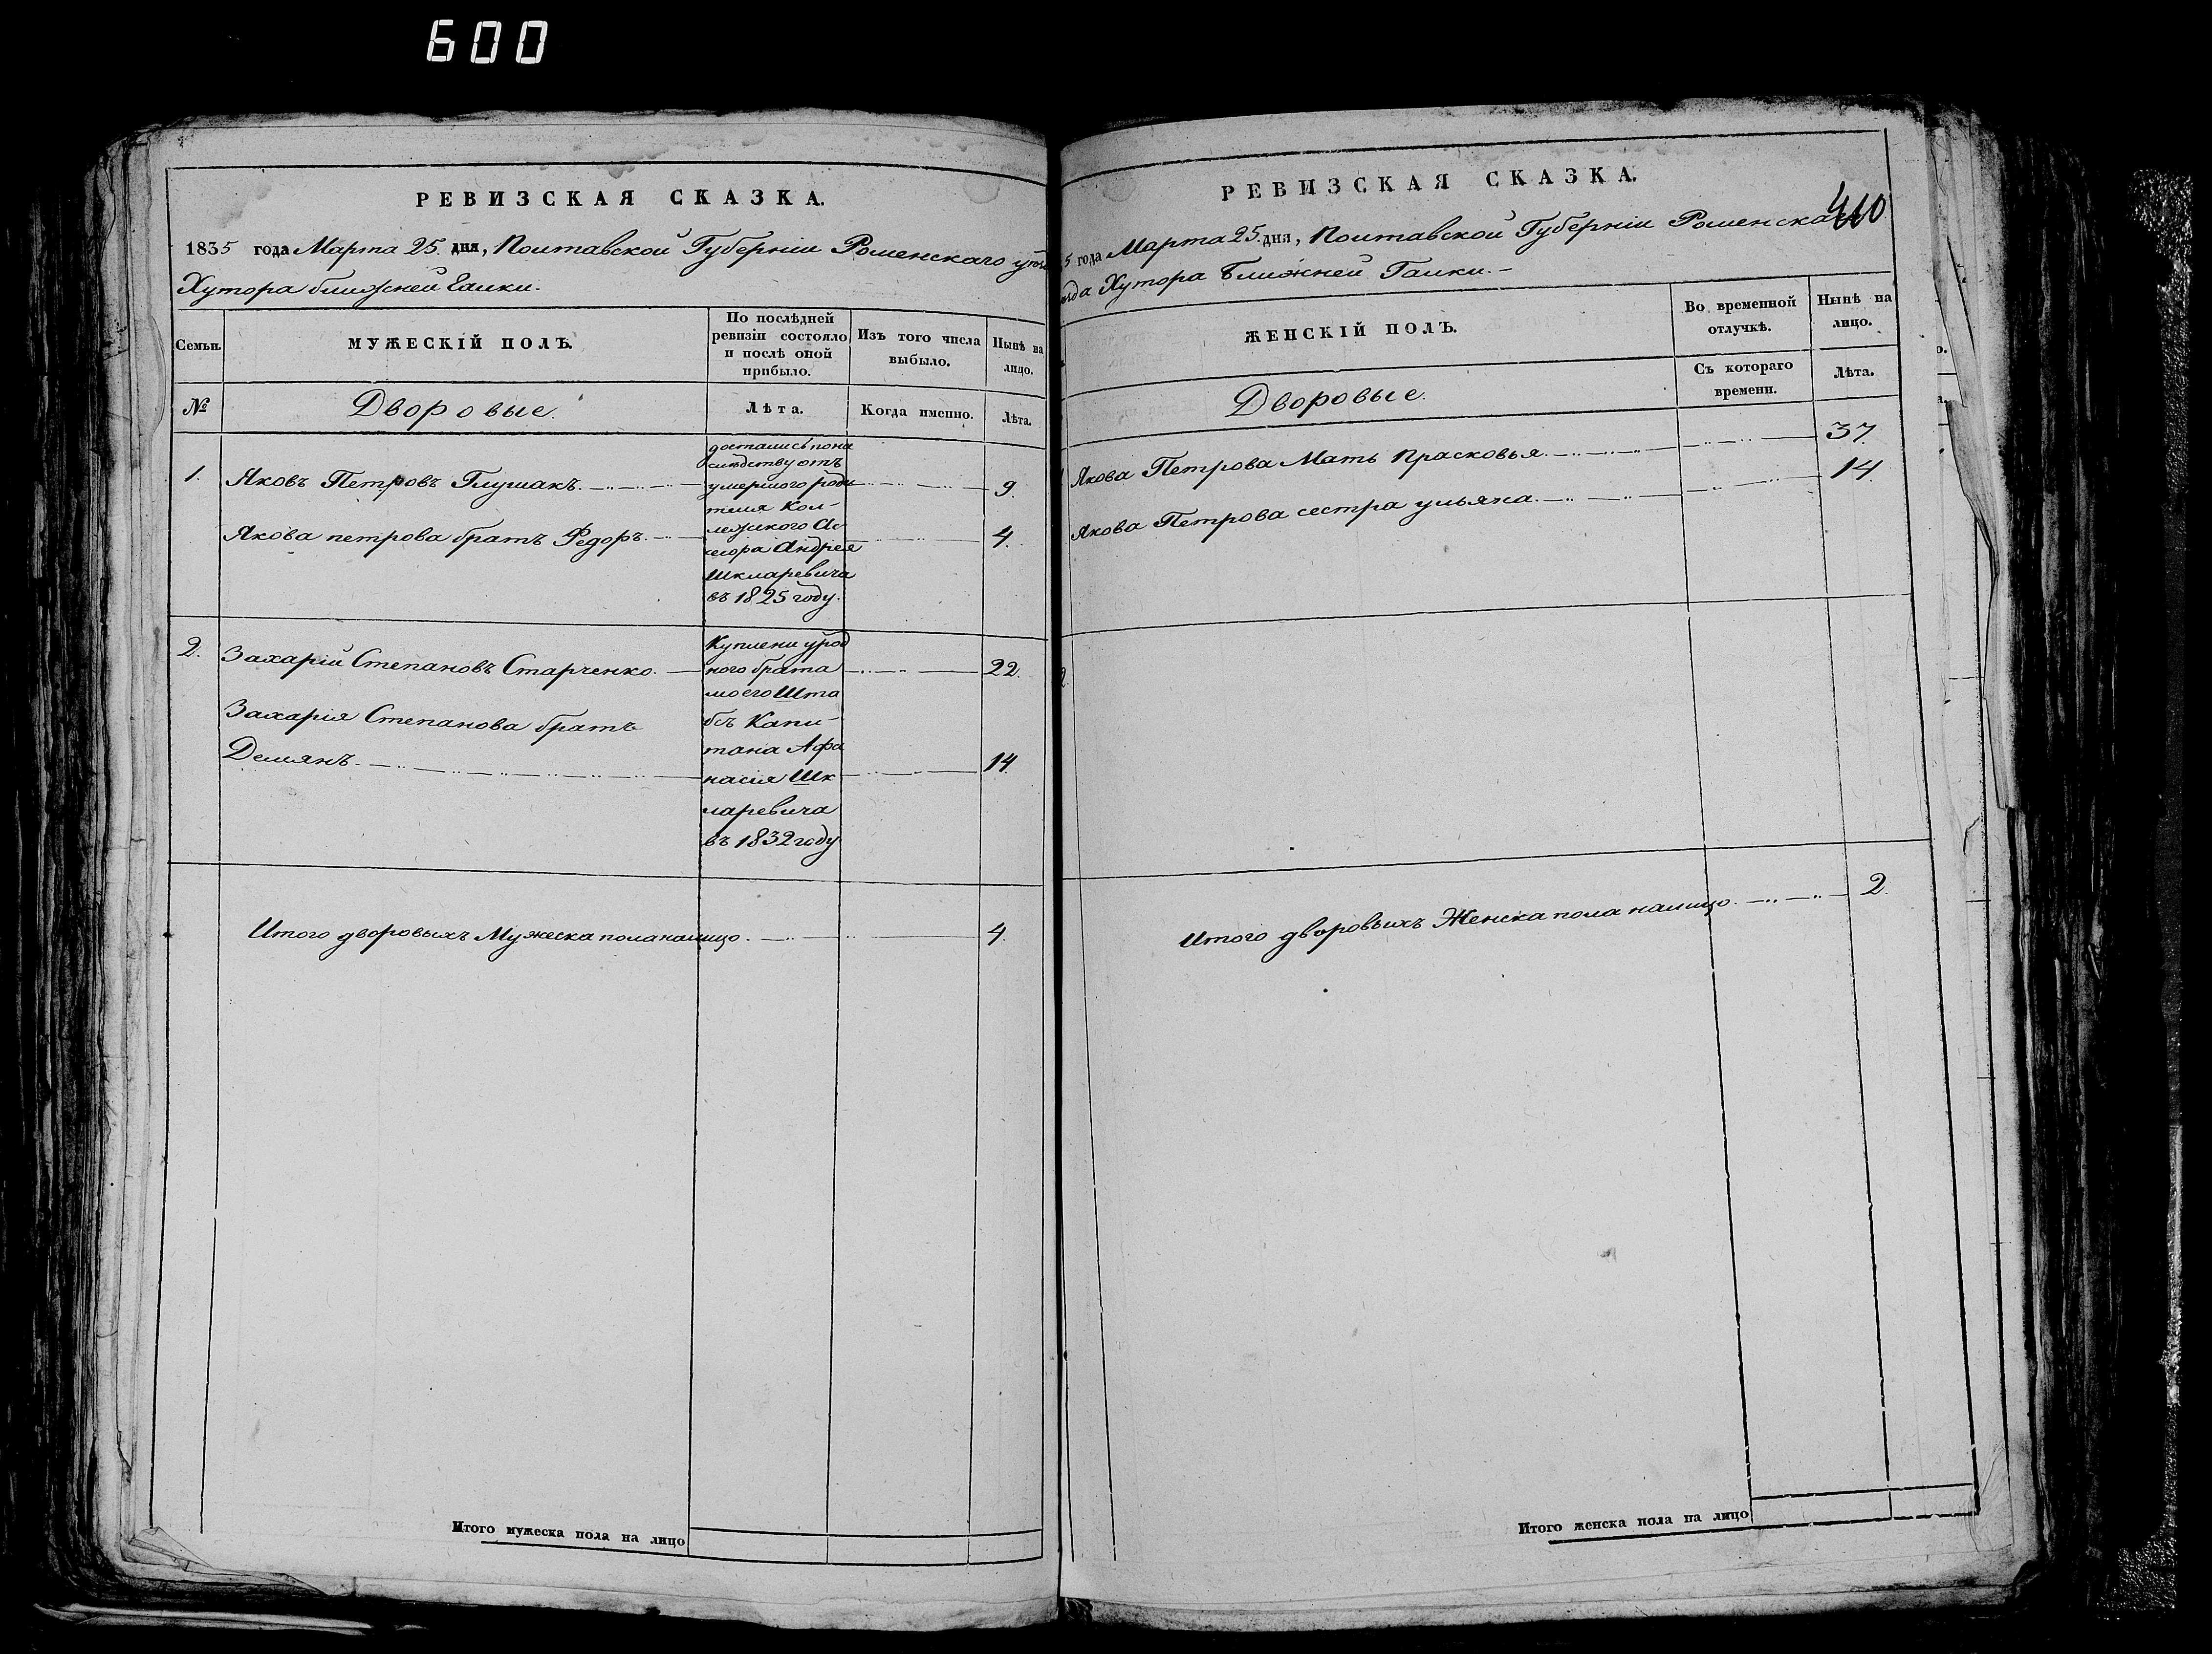 600
РЕВИЗСКАЯ СКАЗКА.
1835 года Марта 25. дня, Полтавской Губерніи Роменскаго
Хутора ближней Галки.
Семьи.
МУЖЕСКІЙ ПОЛЪ.
По послѣдней
ревизіи состояло
и послѣ оной
прибыло.
Изъ того числа
выбыло.
Нынѣ на
лицо.
№
Дворовые.
Лѣта.
Когда именно.
Лѣта.
1.
Яковъ Петровъ Глушакъ.
9.
Якова петрова братъ Федоръ.
4.
достались пона
слѣдству отъ
умершого роди
теля Кол-
лежского Ас
сесора Андрея
Шкларевича
въ 1825 году.
2.
Захарій Степановъ Старченко.
22.
Захарія Степанова братъ
Демянъ.
14.
Куплени урод
ного брата
моего Шта
бсъ Капи-
тана Афа
насія Шк
ларевича
въ 1832 году
Итого дворовыхъ Мужеска пола налицо.
4.
Итого мужеска пола на лицо
РЕВИЗСКАЯ СКАЗКА.
410
5 года Марта 25. дня, Полтавской Губерніи Роменскаго
ѣзда Хутора Ближней Галки.-
ЖЕНСКІЙ ПОЛЪ.
Во временной
отлучкѣ.
Нынѣ на
лицо.
Дворовые.
Съ котораго
времени.
Лѣта.
Якова Петрова Мать Прасковья.
37.
Якова Петрова сестра ульяна.
14.
2.
Итого дворовыхъ Женска пола налицо.
2.
Итого женска пола на лицо